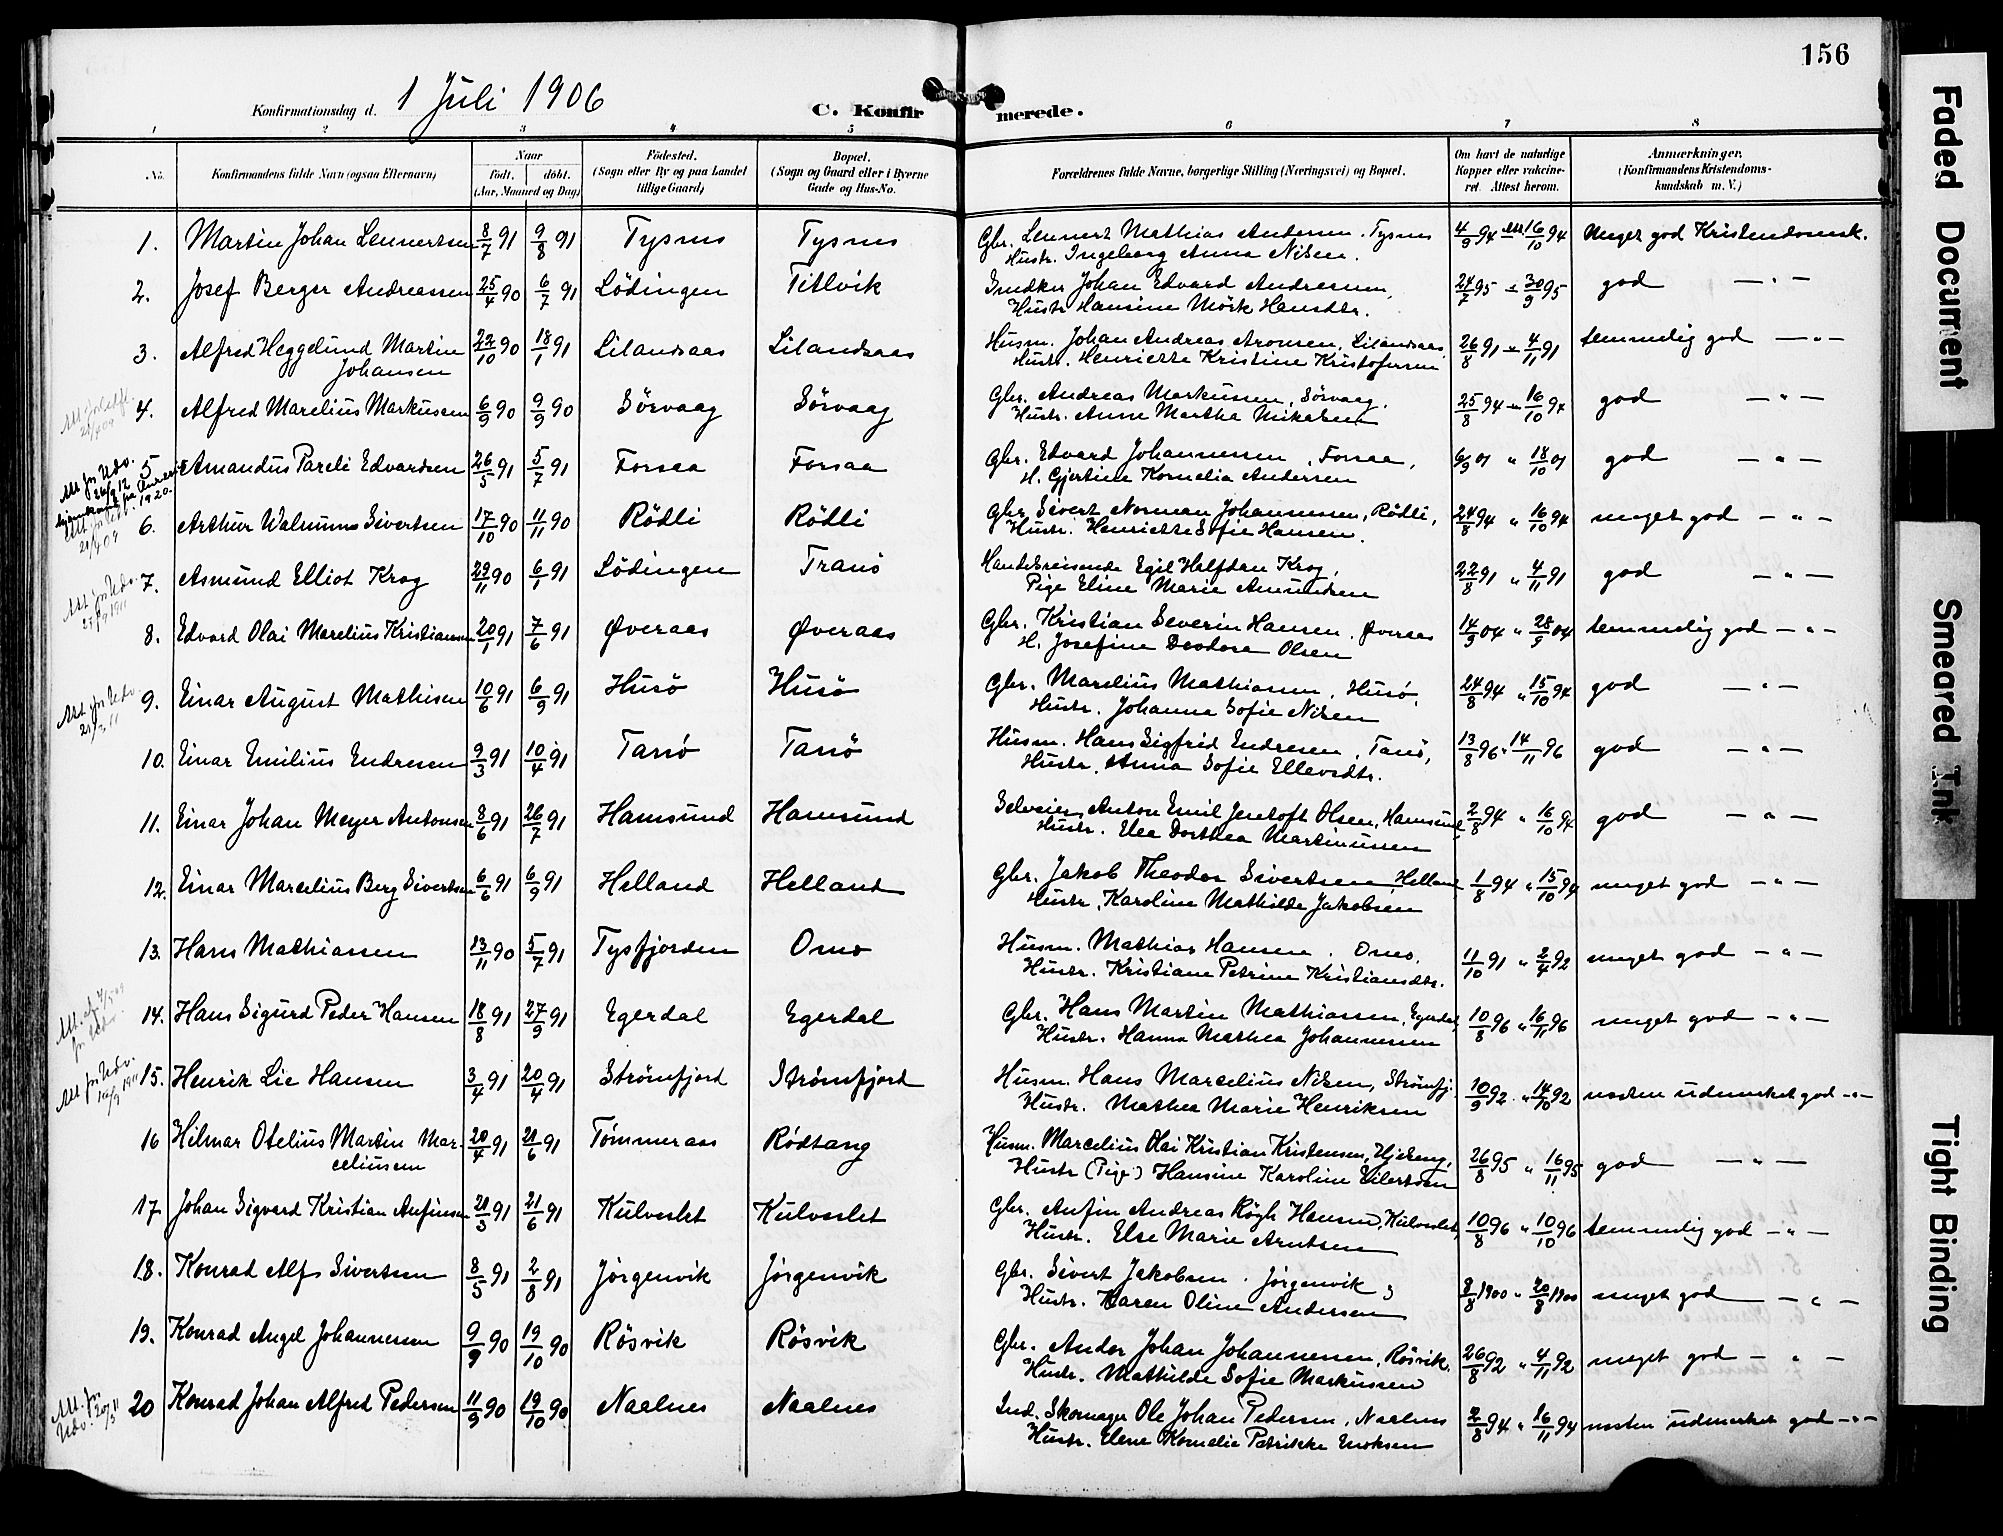 156
Konfirmationsdag d. 1 Juli 1906
C. Konfirmerede.
1 2 3 4 5 6 7 8
No.
Konfirmandens fulde Navn (ogsaa Efternavn)
Naar
födt. döbt.
(Aar, Maaned og Dag)
Födested.
(Sogn eller By og paa Landet
tillige Gaard)
Bopæl.
(Sogn og Gaard eller i Byerne
Gade og Hus-No.
Forældrenes fulde Navne, borgerlige Stilling (Næringsvei) og Bopæl.
Om havt de naturlige
Kopper eller vakcine-
ret. Attest herom.
Anmærkninger.
(Konfirmandens Kristendoms-
kundskab m. V.)
1. Martin Johan Lennertsen 8/7 91 9/8 91 Tysnes Tysnes Gbr. Lennert Mathias Andersen. Tysnes 4/9 94 16/10 94 Meget god Kristendomsk.
Hustr. Ingeborg Anna Nilsen.
2. Josef Berger Andreassen 25/4 90 6/7 91 Lödingen Titlvik Johan Edvard Andreassen, 24/7 95 30/9 95 god — " —
Hustr. Hansine Mörk Hansdtr.
3. Alfred Heggelund Martin 22/10 90 18/1 91 Lilandsaas Lilandsaas Husm. Johan Andreas Aronsen, Lilandsaas 26/8 91 4/11 91 temmelig god — " —
Johansen
Hustr. Henriette Kristine Kristofersen
4. Alfred Marelius Markussen 6/9 90 9/9 90 Sörvaag Sörvaag Gbr. Andreas Markussen, Sörvaag. 25/8 94 16/10 94 god — " —
Hustr. Anne Martha Mikalsen
5 Amandus Pareli Edvardsen 26/5 91 5/7 91 Forsaa Forsaa Gbr. Edvard Johannessen, Forsaa, 6/9 01 " 18/10 01 god — " —
H. Gjertine Kornelia Andersen
6. Arthur Sivertsen 17/10 90 11/11 90 Rödli Rödli Gbr. Sivert Norman Johannessen, Rödli, 24/8 94 " 16/10 94 meget god — " —
Hustr. Henriette Sofie Hansen.
7. Asmund Elliot Krog 29/11 90 6/1 91 Lödingen Tranö Handelsreisende Egil Halfdan Krog, 22/8 91 " 4/11 91 god — " —
Pige Eline Marie Amundsen
8. Edvard Olai Marelius Kristiansen 20/1 91 7/6 91 Øveraas Øveraas Gbr. Kristian Severin Hansen. Øveraas 14/9 04 " 28/9 04 temmelig god — " —
H. Josefine Deodora Olsen
9. Einar August Mathisen 10/6 91 6/9 91 Husö Husö Gbr. Marelius Mathiassen, Husö, 24/8 94 " 15/10 94 god — " —
Hustr. Johanna Sofie Nilsen
10. Einar Emilius Endresen 9/3 91 10/4 91 Tansö Tansö Husm. Hans Sigfrid Endresen, 13/8 96 " 14/11 96 god — " —
Hustr. Anna Sofie Ellevsdtr.
11. Einar Johan Meyer Antonsen 8/6 91 26/7 91 Hamsund Hamsund Selveier Anton Emil Jentoft Olsen, Hamsund 2/8 94 " 16/10 94 god — " —
Hustr. Elea Dorthea Martinussen
12. Einar Marcelius Berg Sivertsen 6/6 91 6/9 91 Helland Helland Gbr. Jakob Theodor Sivertsen, Helland 1/8 94 " 15/10 94 meget god — " —
Hustr. Karoline Mathilde Jakobsen
13. Hans Mathiassen 13/11 90 5/7 91 Tysfjorden Omo Husm. Mathias Hansen. Omo. 11/10 91 " 2/4 92 meget god — " —
Hustr. Kristiane Petrine Kristiansdtr.
14. Hans Sigurd Peder Hansen 18/8 91 27/9 91 Egerdal Egerdal Gbr. Hans Martin Mathiassen, Egerdal 10/8 96 " 16/11 96 meget god — " —
Hustr. Hanna Mathea Johannessen
15. Henrik Lie Hansen 3/4 91 20/4 91 Strömfjord Strömfjord Husm. Hans Marcelius Nilsen, Strömfj. 10/9 92 " 14/10 92 næsten udmerket god — " —
Hustr. Mathea Marie Henriksen
16 Hilmar Otelius Martin Mar- 20/4 91 21/6 91 Tömmeraas Rödtang Husm. Marcelius Olai Kristian Kristensen, 26/8 95 " 16/11 95 god — " —
celiussen
Hustr (Pige) Hansine Karoline Eilertsen
17 Johan Sigvard Kristian Anfinsen 21/3 91 21/6 91 Kulveslet Kulveslet Gbr. Anfin Andreas Rögh Hansen, Kulveslet 10/8 96 " 10/10 96 temmelig god — " —
Hustr. Else Marie Arntsen
18. Konrad Alfs Sivertsen 8/5 91 2/8 91 Jörgenvik Jörgenvik Gbr. Sivert Jakobsen. Jörgenvik, 8/8 1900 " 20/8 1900 meget god — " —
Hustr. Karen Oline Andersen
19. Konrad Angel Johannessen 9/9 90 19/10 90 Rösvik Rösvik Gbr. Andor Johan Johannessen, Rösvik. 26/8 92 " 4/11 92 meget god — " —
Hustr. Mathilde Sofie Markussen
20 Konrad Johan Alfred Pedersen 11/9 90 19/10 90 Naalnes Naalnes Ind. Skomager Ole Johan Pedersen, Naalnes 2/8 94 " 16/11 94 næsten udmerket god — " —
Hustr. Elene Kornelie Petrikke Enoksen
Faded Document
Smeared Ink
Tight Binding